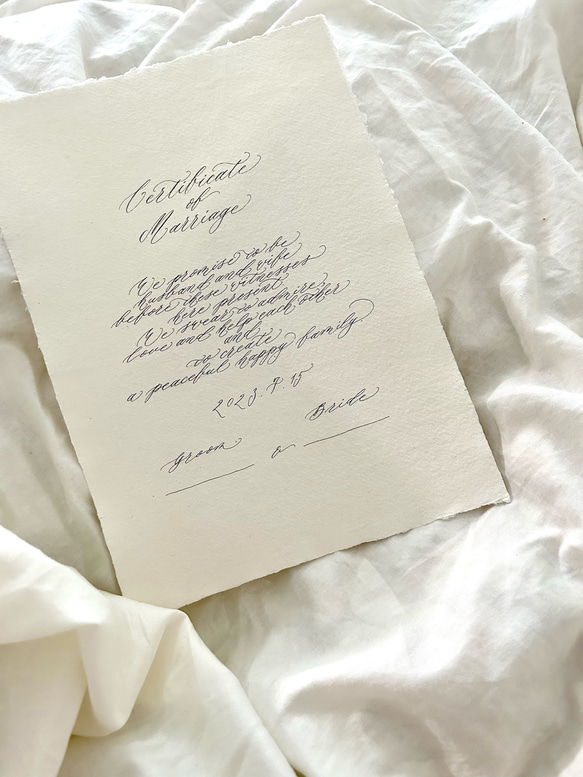 Certificate
of
Marriage
We promise to be
husband and wife
before these witnesses
here present.
We swear to admire,
love and help each other
and
to create
a peaceful happy family
2023. 9. 15
Groom
&
Bride